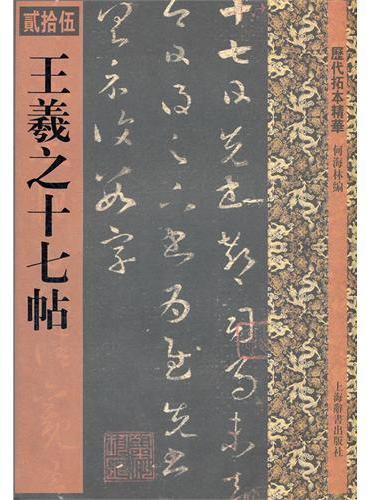 貳拾伍
王羲之十七帖
十七日先書郗司馬未去
即日得足下書為慰先書
以具示復數字
歷代拓本精華
何海林編
上海辭書出版社